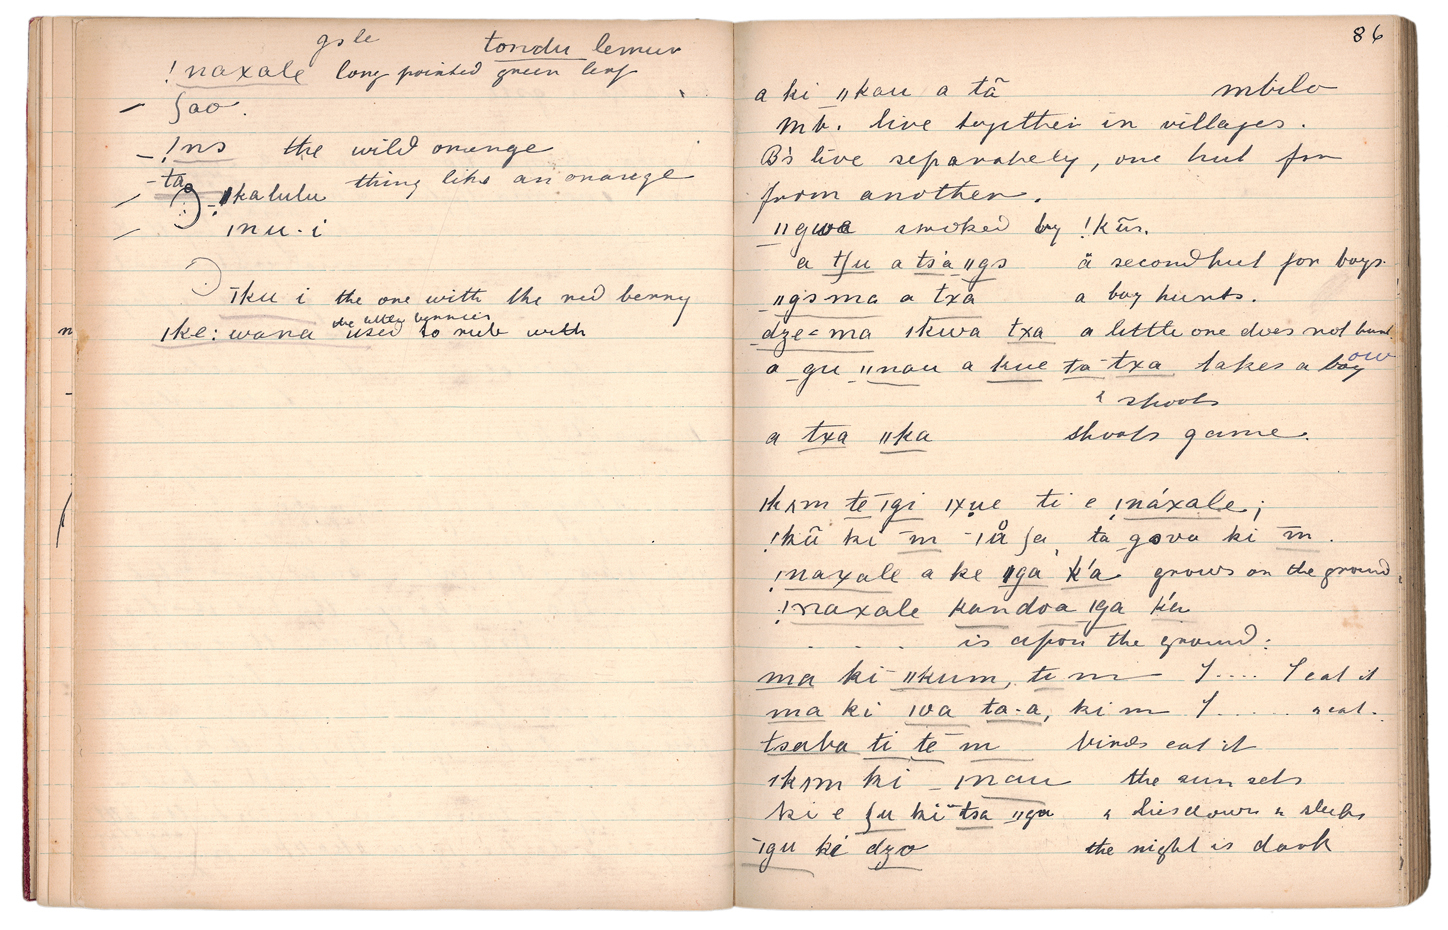 gole tondu lemur
!naxale long pointed green leaf
ʃao.
!ns the wild orange
ta thing like an orange
ǁkalulu
ǀnu-i
ǀku i the one with the red berry
the utters berries
ǀke: wana used to rub with
86
a ki ǁkau a tã mbilo
Mb. live together in villages.
B's live separately, one hut far
from another.
ǁgwa smoked by !kũs.
a tʃu a tsá ǁgs a second hut for boys.
ǁgs ma a txa a boy hunts.
dze = ma ǀkwa txa a little one does not hunt
a gu ǁnau a kue ta txa takes a bow
& shoots
a txa ǁka shoots game.
ǀkʌm te ǀgi ǀxue ti e !náxale;
!kũ ki m ǀå ʃa, ta gova ki m.
!naxale a ke ǁga k'a grows on the ground
!naxale kandoa ǀga k'a
. . . is upon the ground:
ma ki ǁkum, te m I .... I eat it
ma ki ǀoa ta-a, ki m I ..... " eat.
tsaba ti te m birds eat it
ǀkʌm ki ǀnau the sun sets
ki e ʃu ki tsa ǁga & lies down & sleeps
ǀgu ki dzo the night is dark